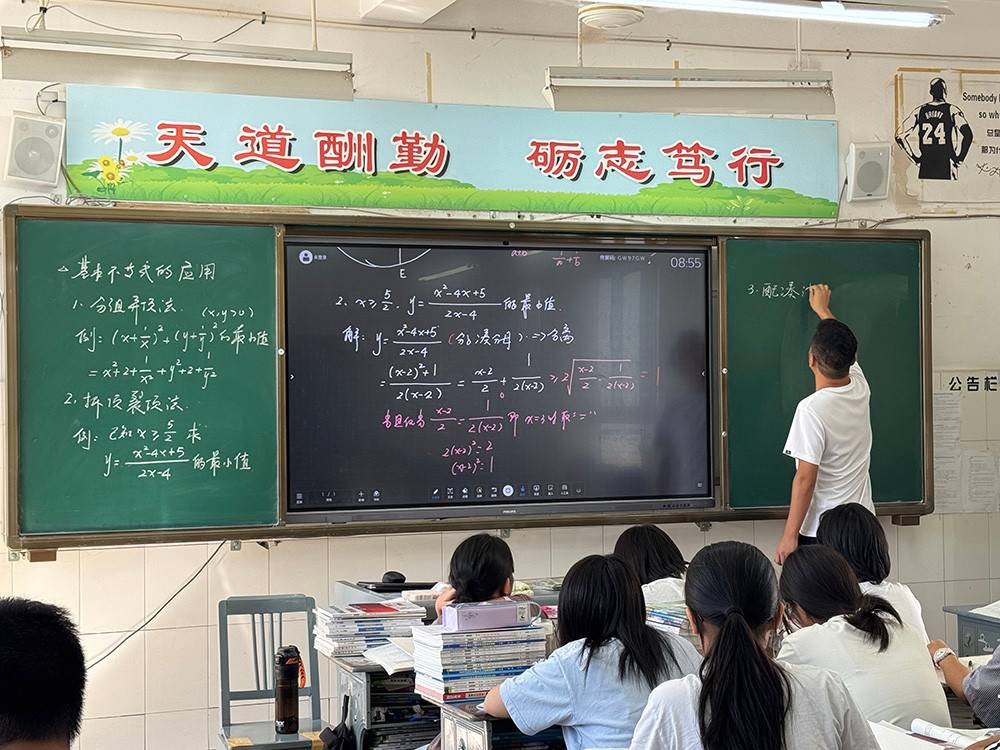 天道酬勤 砺志笃行
BRYANT
24
Somebody
so wh
公告栏
△基本不等式的应用
1. 分组并项法.
(x,y>0)
例: (x+1/x)²+(y+1/y)²的最小值
= x²+2+1/x²+y²+2+1/y²
2. 拆项裂项法.
例: 已知 x≥5/2 求
y=(x²-4x+5)/(2x-4) 的最小值
E
GW97GW
08:55
2. x≥5/2. y=(x²-4x+5)/(2x-4) 的最小值.
解: y=(x²-4x+5)/(2x-4) (分子凑分母). => 分离
= ((x-2)²+1)/(2(x-2)) = (x-2)/2 + 1/(2(x-2)) ≥ 2√((x-2)/2 · 1/(2(x-2))) = 1
当且仅当 (x-2)/2 = 1/(2(x-2)) 即 x=3时取"="
2(x-2)²=2
(x-2)²=1
1/1
PHILIPS
3. 配凑法